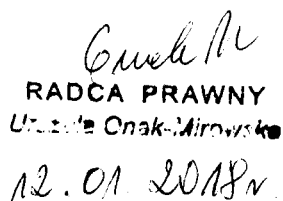 RADCA PRAWNY
Urszula Onak-Mirowska
12.01.2018r.